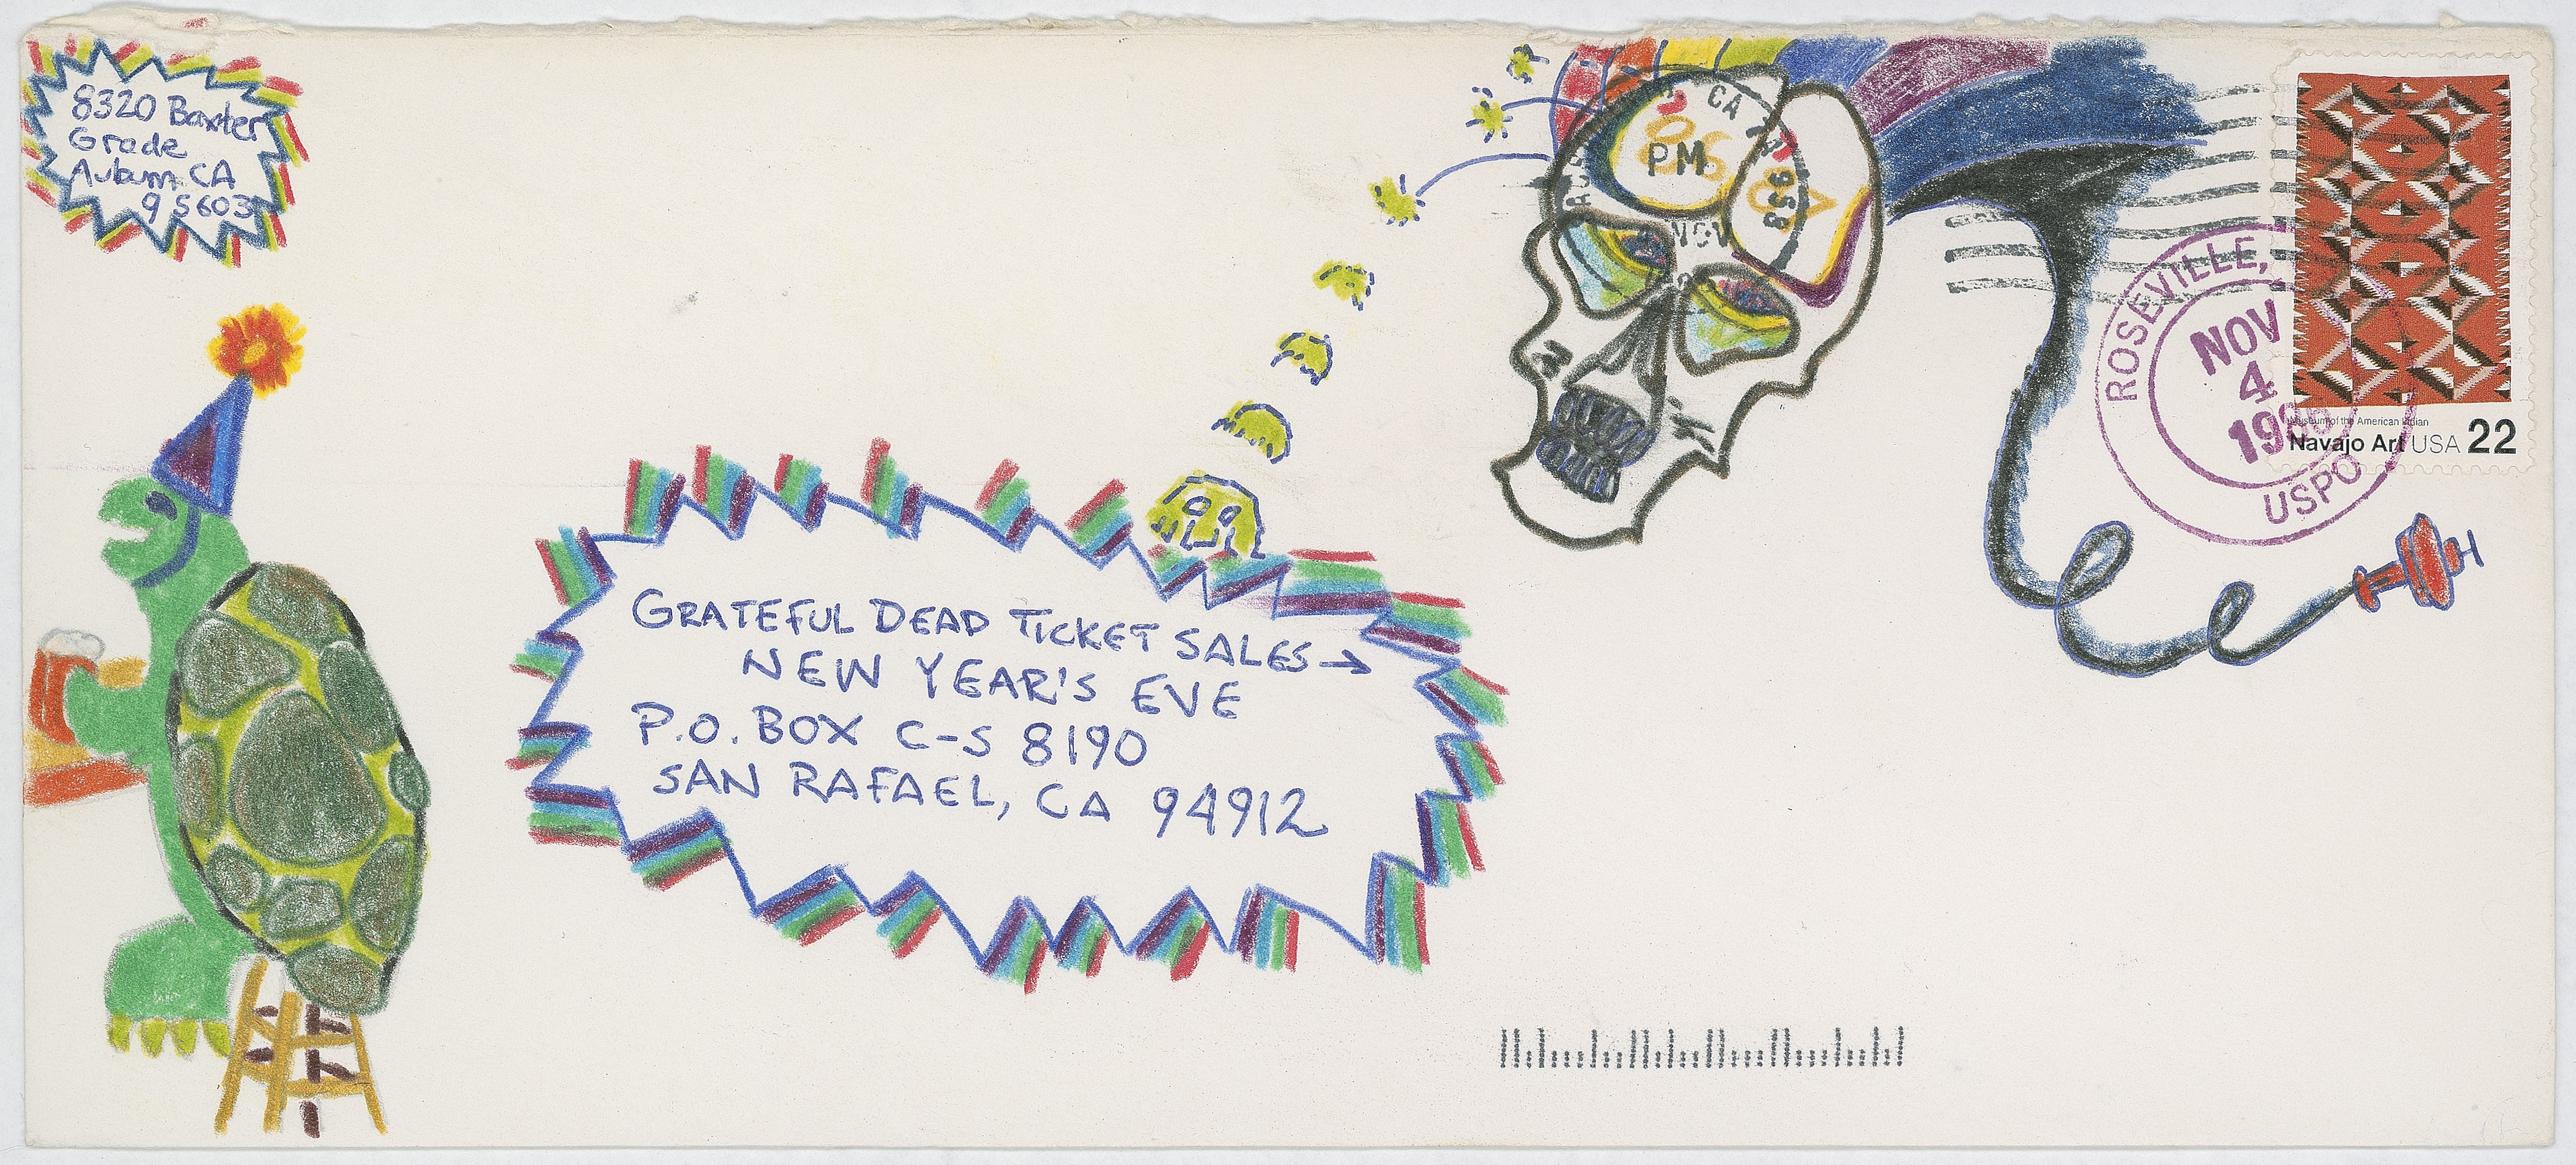 8320 Baxter
Grade
Auburn CA
95603
GRATEFUL DEAD TICKET SALES→
NEW YEAR'S EVE
P.O. BOX C-S 8190
SAN RAFAEL, CA 94912
CA 956
PM
NOV
ROSEVILLE,
NOV
4
USPO
Museum of the American Indian
Navajo Art USA 22